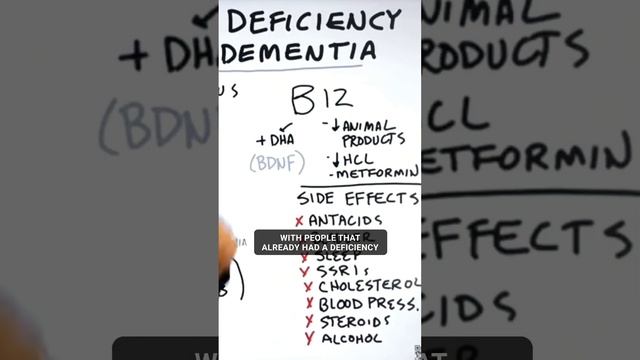 DEFICIENCY
DEMENTIA
US
B12
+ DHA
(BDNF)
- ↓ ANIMAL
PRODUCTS
- ↓ HCL
- METFORMIN
SIDE EFFECTS
x ANTACIDS
WITH PEOPLE THAT
ALREADY HAD A DEFICIENCY
x SLEEP
x SSRIs
x CHOLESTEROL
x BLOOD PRESS.
x STEROIDS
x ALCOHOL
+ DHA
(BDNF)
ANIMAL
PRODUCTS
HCL
METFORMIN
EFFECTS